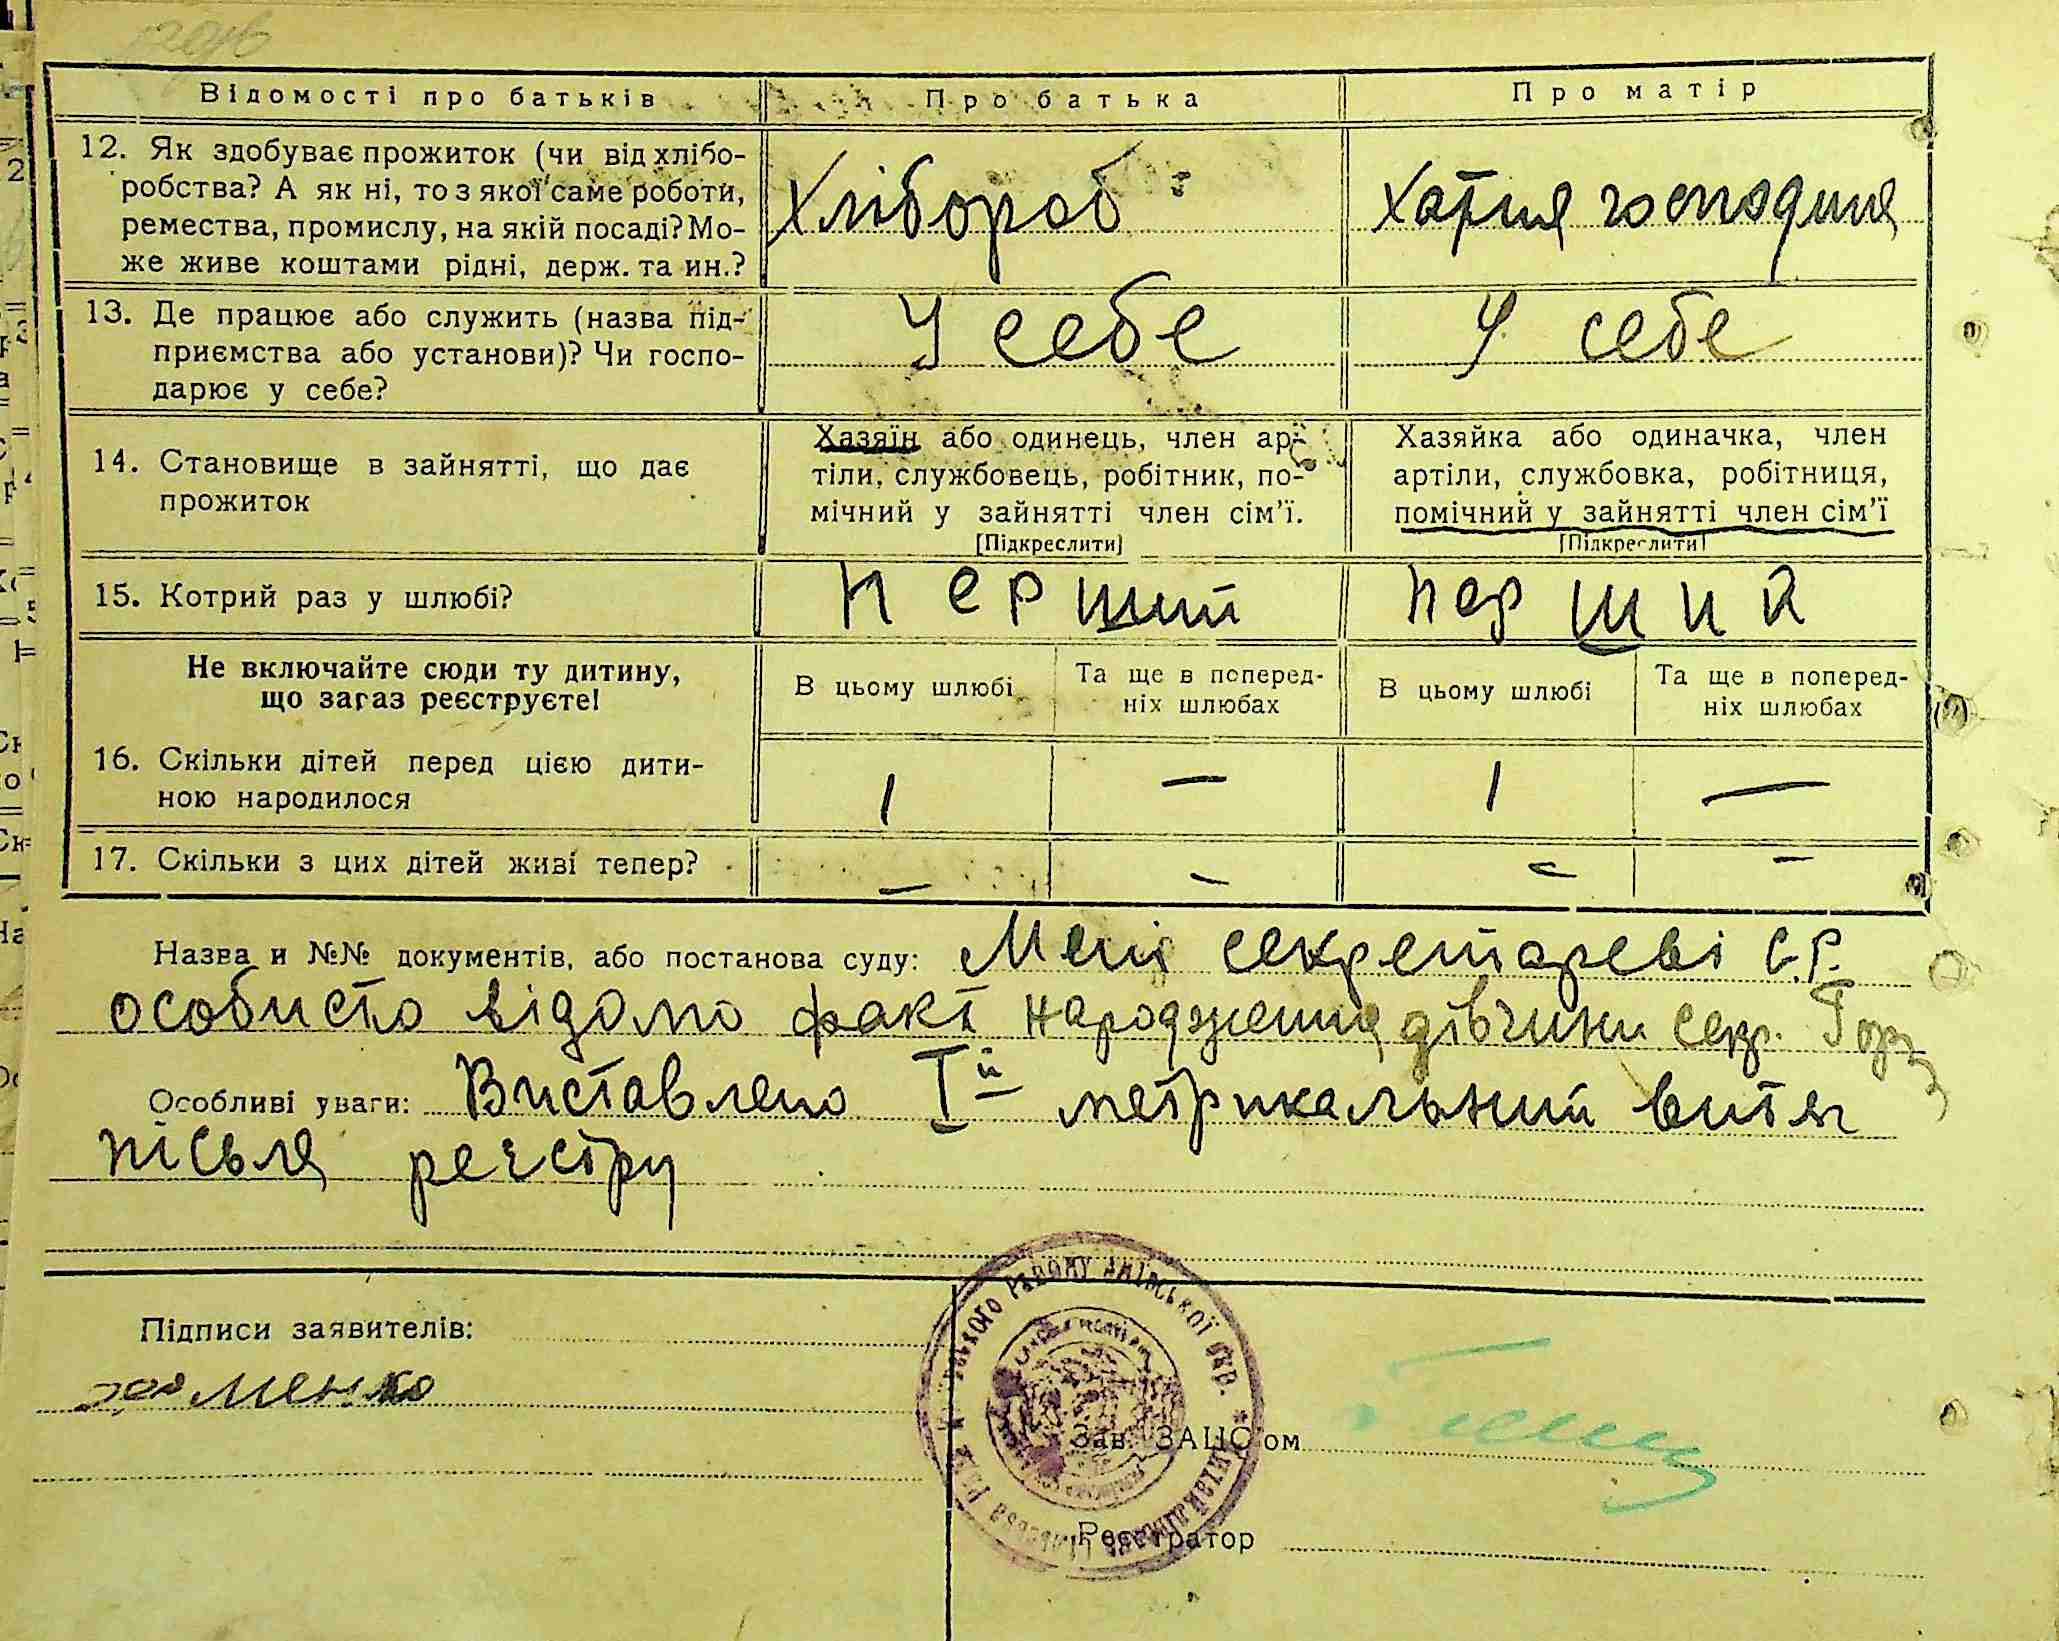 Відомості про батьків
Про батька
Про матір
12. Як здобуває прожиток (чи від хлібо-
робства? А як ні, то з якої саме роботи,
ремества, промислу, на якій посаді? Мо-
же живе коштами рідні, держ. та ин.?
Хлібороб
Хатня господиня
13. Де працює або служить (назва під-
приємства або установи)? Чи госпо-
дарює у себе?
У себе
У себе
14. Становище в зайнятті, що дає
прожиток
Хазяїн або одинець, член ар-
тіли, службовець, робітник, по-
мічний у зайнятті член сім'ї.
[Підкреслити]
Хазяйка або одиначка, член
артіли, службовка, робітниця,
помічний у зайнятті член сім'ї
[Підкреслити]
15. Котрий раз у шлюбі?
перший
перший
Не включайте сюди ту дитину,
що зараз реєструєте!
В цьому шлюбі
Та ще в поперед-
ніх шлюбах
В цьому шлюбі
Та ще в поперед-
ніх шлюбах
16. Скільки дітей перед цією дити-
ною народилося
1
—
1
—
17. Скільки з цих дітей живі тепер?
—
—
—
—
Назва и №№ документів, або постанова суду: Мені секретареві С.Р.
особисто відомо факт народження дівчини секр.
Особливі уваги: Виставлено Iй метрикальний витяг
після реєстру
Підписи заявителів:
Зав. ЗАЦС'ом
Реєстратор